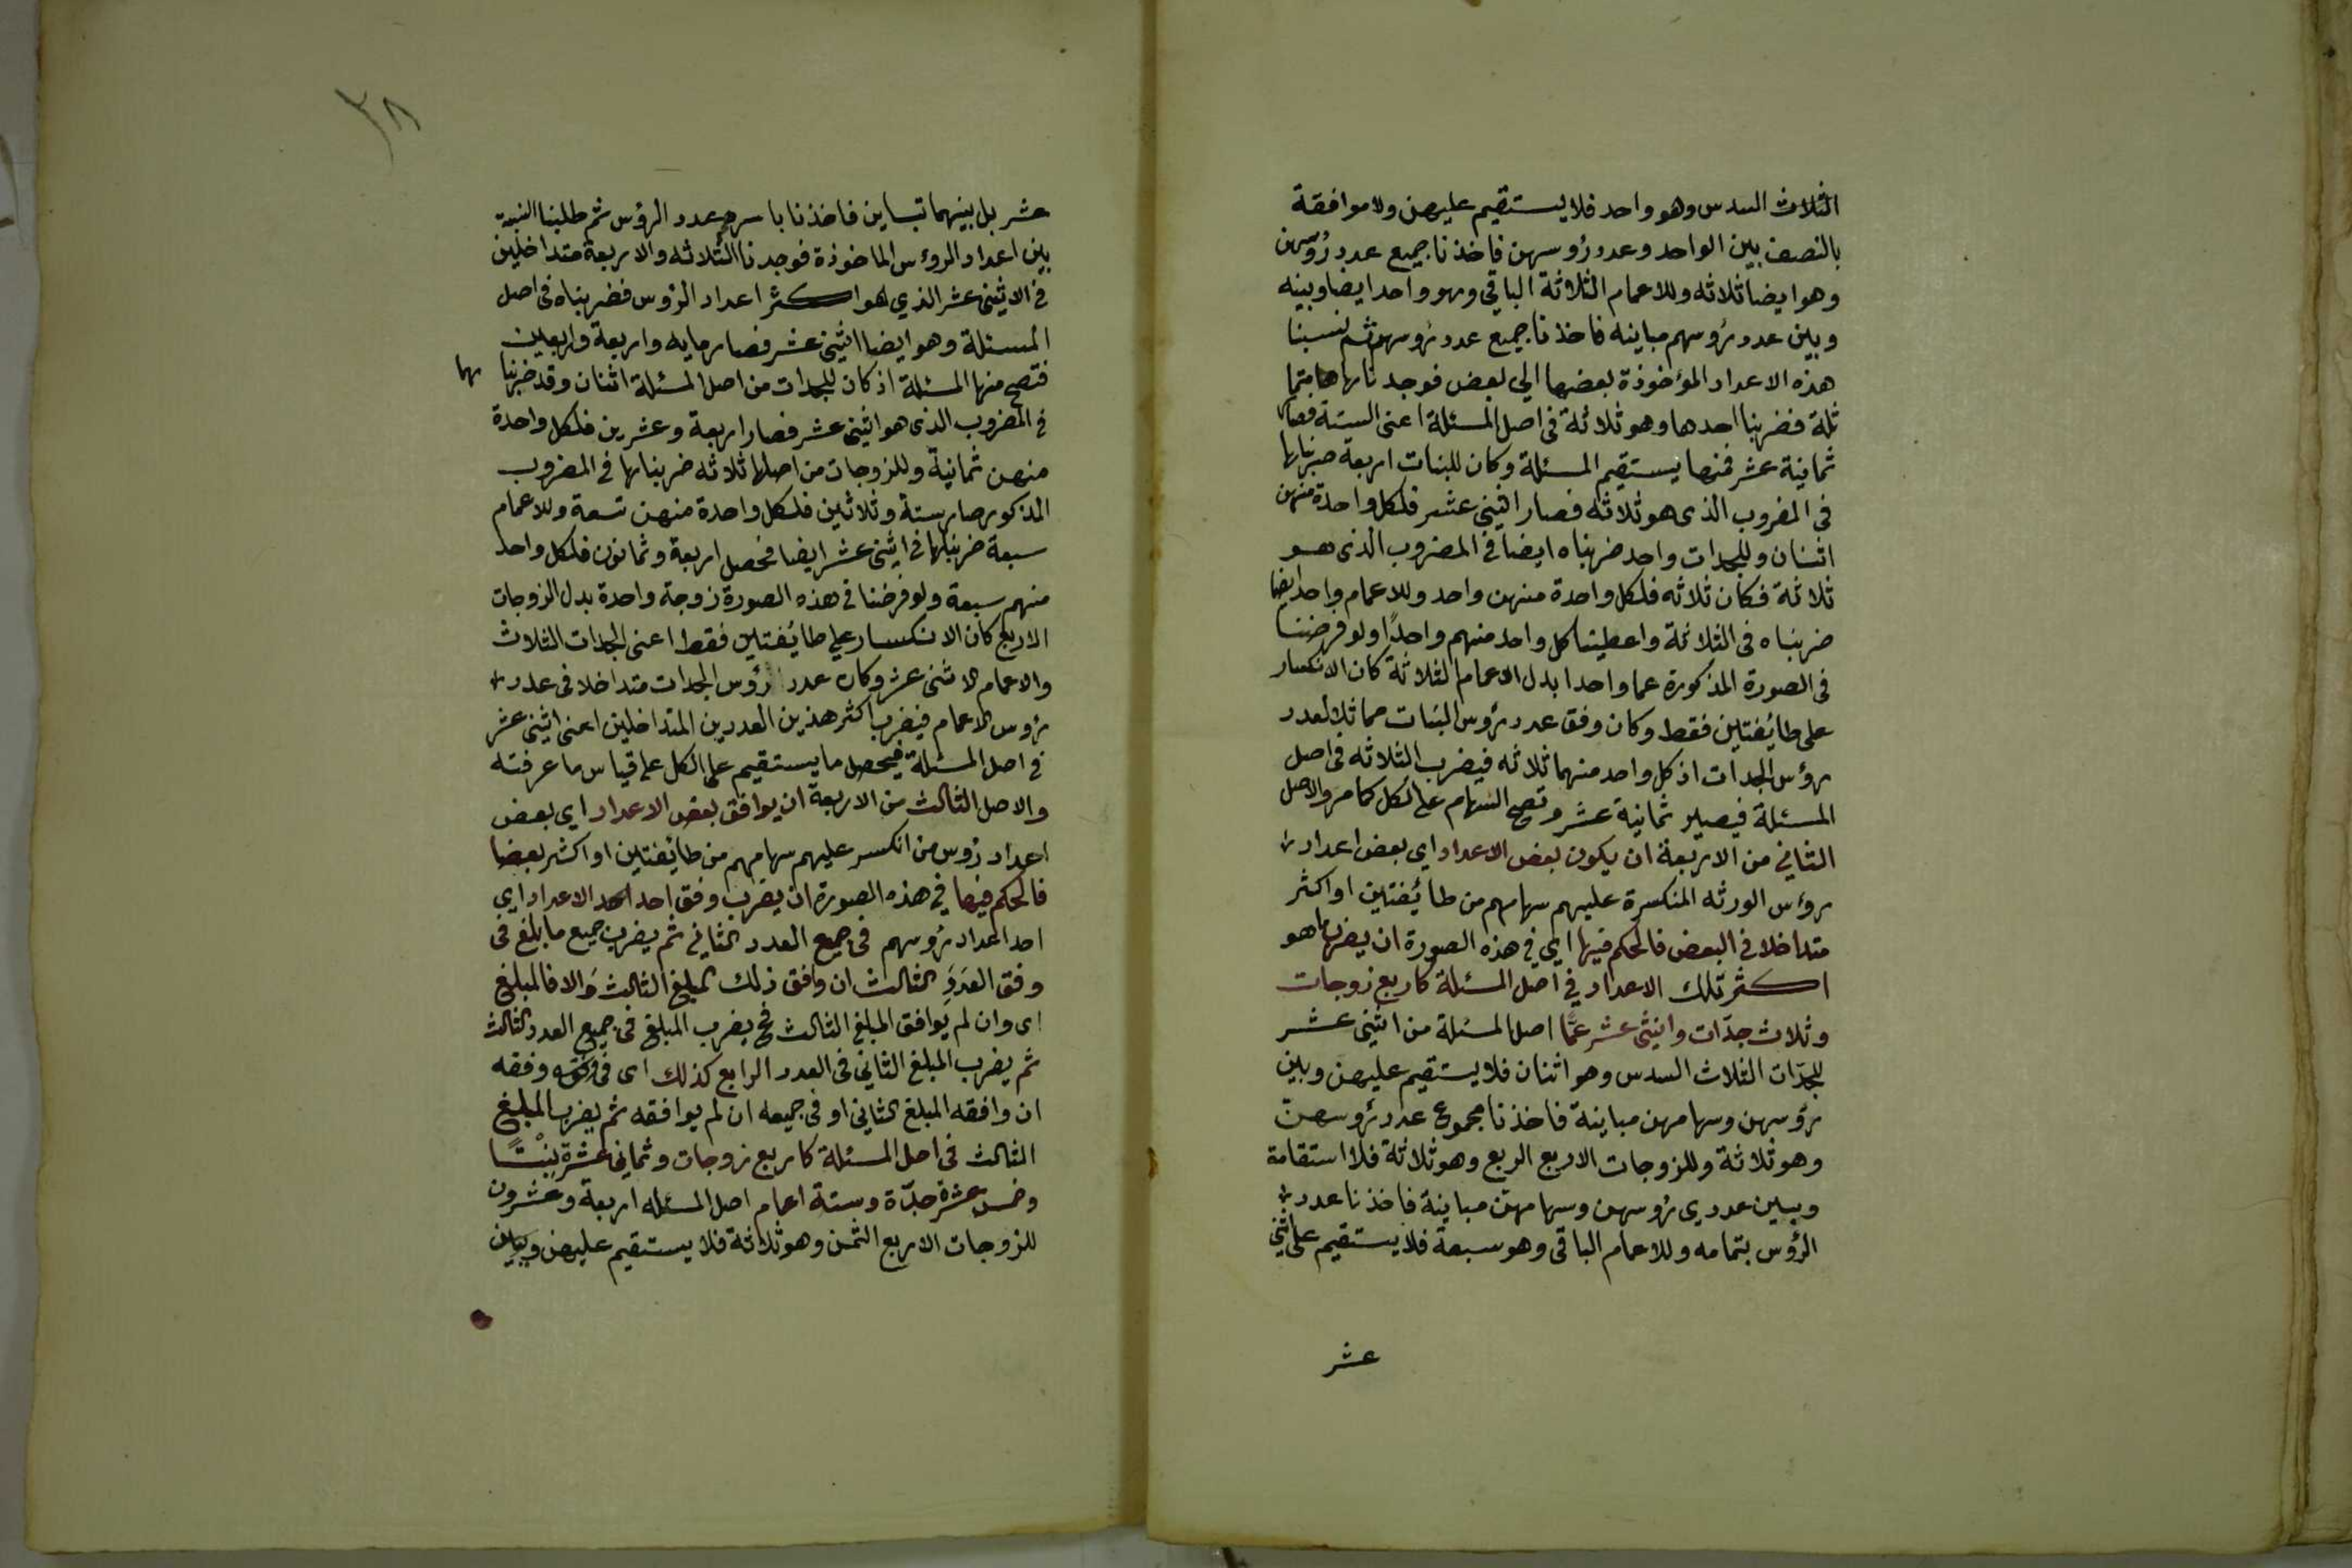 الثلاث السدس وهو واحد فلا يستقيم عليهن ولا موافقة
بالنصف بين الواحد وعدد رؤسهن فاخذنا جميع عدد رُؤسهن
وهو ايضا ثلاثه وللاعمام الثلاثة الباقي وهو واحد ايضا وبينه
وبين عدد رؤسهم مباينه فاخذنا جميع عدد رؤسهم ثم نسبنا
هذه الاعداد المؤخوذة بعضها الي بعض فوجدناها متما
ثلة فضربنا احدها وهو ثلاثة فى اصل المسئلة اعنى الستة فصار
ثمانية عشر فمنها يستقيم المسئلة وكان للبنات اربعة ضربناها
فى المضروب الذى هو ثلاثه فصار اثنى عشر فلكل واحدة منهن
اثنان وللجدات واحد ضربناه ايضا فى المضروب الذى هو
ثلاثة فكان ثلاثه فلكل واحدة منهن واحد وللاعمام واحد ايضا
ضربناه فى الثلاثة واعطينا كل واحد منهم واحدًا ولو فرضنا
فى الصورة المذكورة عما واحدا بدل الاعمام الثلاثة كان الانكسار
على طائفتين فقط وكان وفق عدد رؤس البنات مماثلا لعدد
رؤس الجدات اذ كل واحد منهما ثلاثه فيضرب الثلاثه فى اصل
المسئلة فيصير ثمانية عشر وتصح السهام على الكل كما مر والاصل
الثاني من الاربعة ان يكون بعض الاعداد اي بعض اعداد
رؤس الورثه المنكسرة عليهم سهامهم من طائفتين او اكثر
متداخلا في البعض فالحكم فيها اي في هذه الصورة ان يضرب ما هو
اكثر تلك الاعداد في اصل المسئلة كاربع زوجات
وثلاث جدّات واثنى عشر عمًّا اصل المسئلة من اثنى عشر
للجدّات الثلاث السدس وهو اثنان فلا يستقيم عليهن وبين
رؤسهن وسهامهن مباينة فاخذنا مجموع عدد رؤسهنّ
وهو ثلاثة وللزوجات الاربع الربع وهو ثلاثة فلا استقامة
وبين عددى رؤسهن وسهامهن مباينة فاخذنا عدد
الرؤس بتمامه وللاعمام الباقى وهو سبعة فلا يستقيم على اثنى
عشر
٣٨
عشر بل بينهما تباين فاخذنا باسره عدد الرؤس ثم طلبنا النسبة
بين اعداد الرؤس الماخوذة فوجدنا الثلاثه والاربعة متداخلين
فى الاثنى عشر الذي هو اكثر اعداد الرؤس فضربناه فى اصل
المسئلة وهو ايضا اثنى عشر فصار مايه واربعة واربعين
فتصح منها المسئلة اذ كان للجدات من اصل المسئلة اثنان وقد ضربنا هما
فى المضروب الذى هو اثنى عشر فصار اربعة وعشرين فلكل واحدة
منهن ثمانية وللزوجات من اصلها ثلاثه ضربناها فى المضروب
المذكور صار ستة وثلاثين فلكل واحدة منهن تسعة وللاعمام
سبعة ضربناها فى اثنى عشر ايضا فحصل اربعة وثمانون فلكل واحد
منهم سبعة ولو فرضنا فى هذه الصورة زوجة واحدة بدل الزوجات
الاربع كان الانكسار علي طائفتين فقط اعنى الجدات الثلاث
والاعمام الاثنى عشر وكان عدد رؤس الجدات متداخلا فى عدد
رؤس الاعمام فيضرب اكثر هذين العددين المتداخلين اعنى اثنى عشر
فى اصل المسئلة فيحصل ما يستقيم على الكل على قياس ما عرفته
والاصل الثالث من الاربعة ان يوافق بعض الاعداد اي بعض
اعداد رؤس من انكسر عليهم سهامهم من طائفتين او اكثر بعضا
فالحكم فيها في هذه الصورة ان يضرب وفق احد الاعداد اي
احد اعداد رؤسهم فى جميع العدد الثاني ثم يضرب جميع ما بلغ فى
وفق العدَدِ الثالث ان وافق ذلك المبلغ الثالث وَالا فالمبلغ
اى وان لم يوافق المبلغ الثالث فح يضرب المبلغ فى جميع العدد الثالث
ثم يضرب المبلغ الثاني فى العدد الرابع كذلك اى فى وفقه
ان وافقه المبلغ الثانى او فى جميعه ان لم يوافقه ثم يضرب المبلغ
الثالث فى اصل المسئلة كاربع زوجات وثمانى عشرة بِنْتًا
وخمس عشرة جدّة وستة اعمام اصل المسئله اربعة وعشرون
للزوجات الاربع الثمن وهو ثلاثة فلا يستقيم عليهن وبين